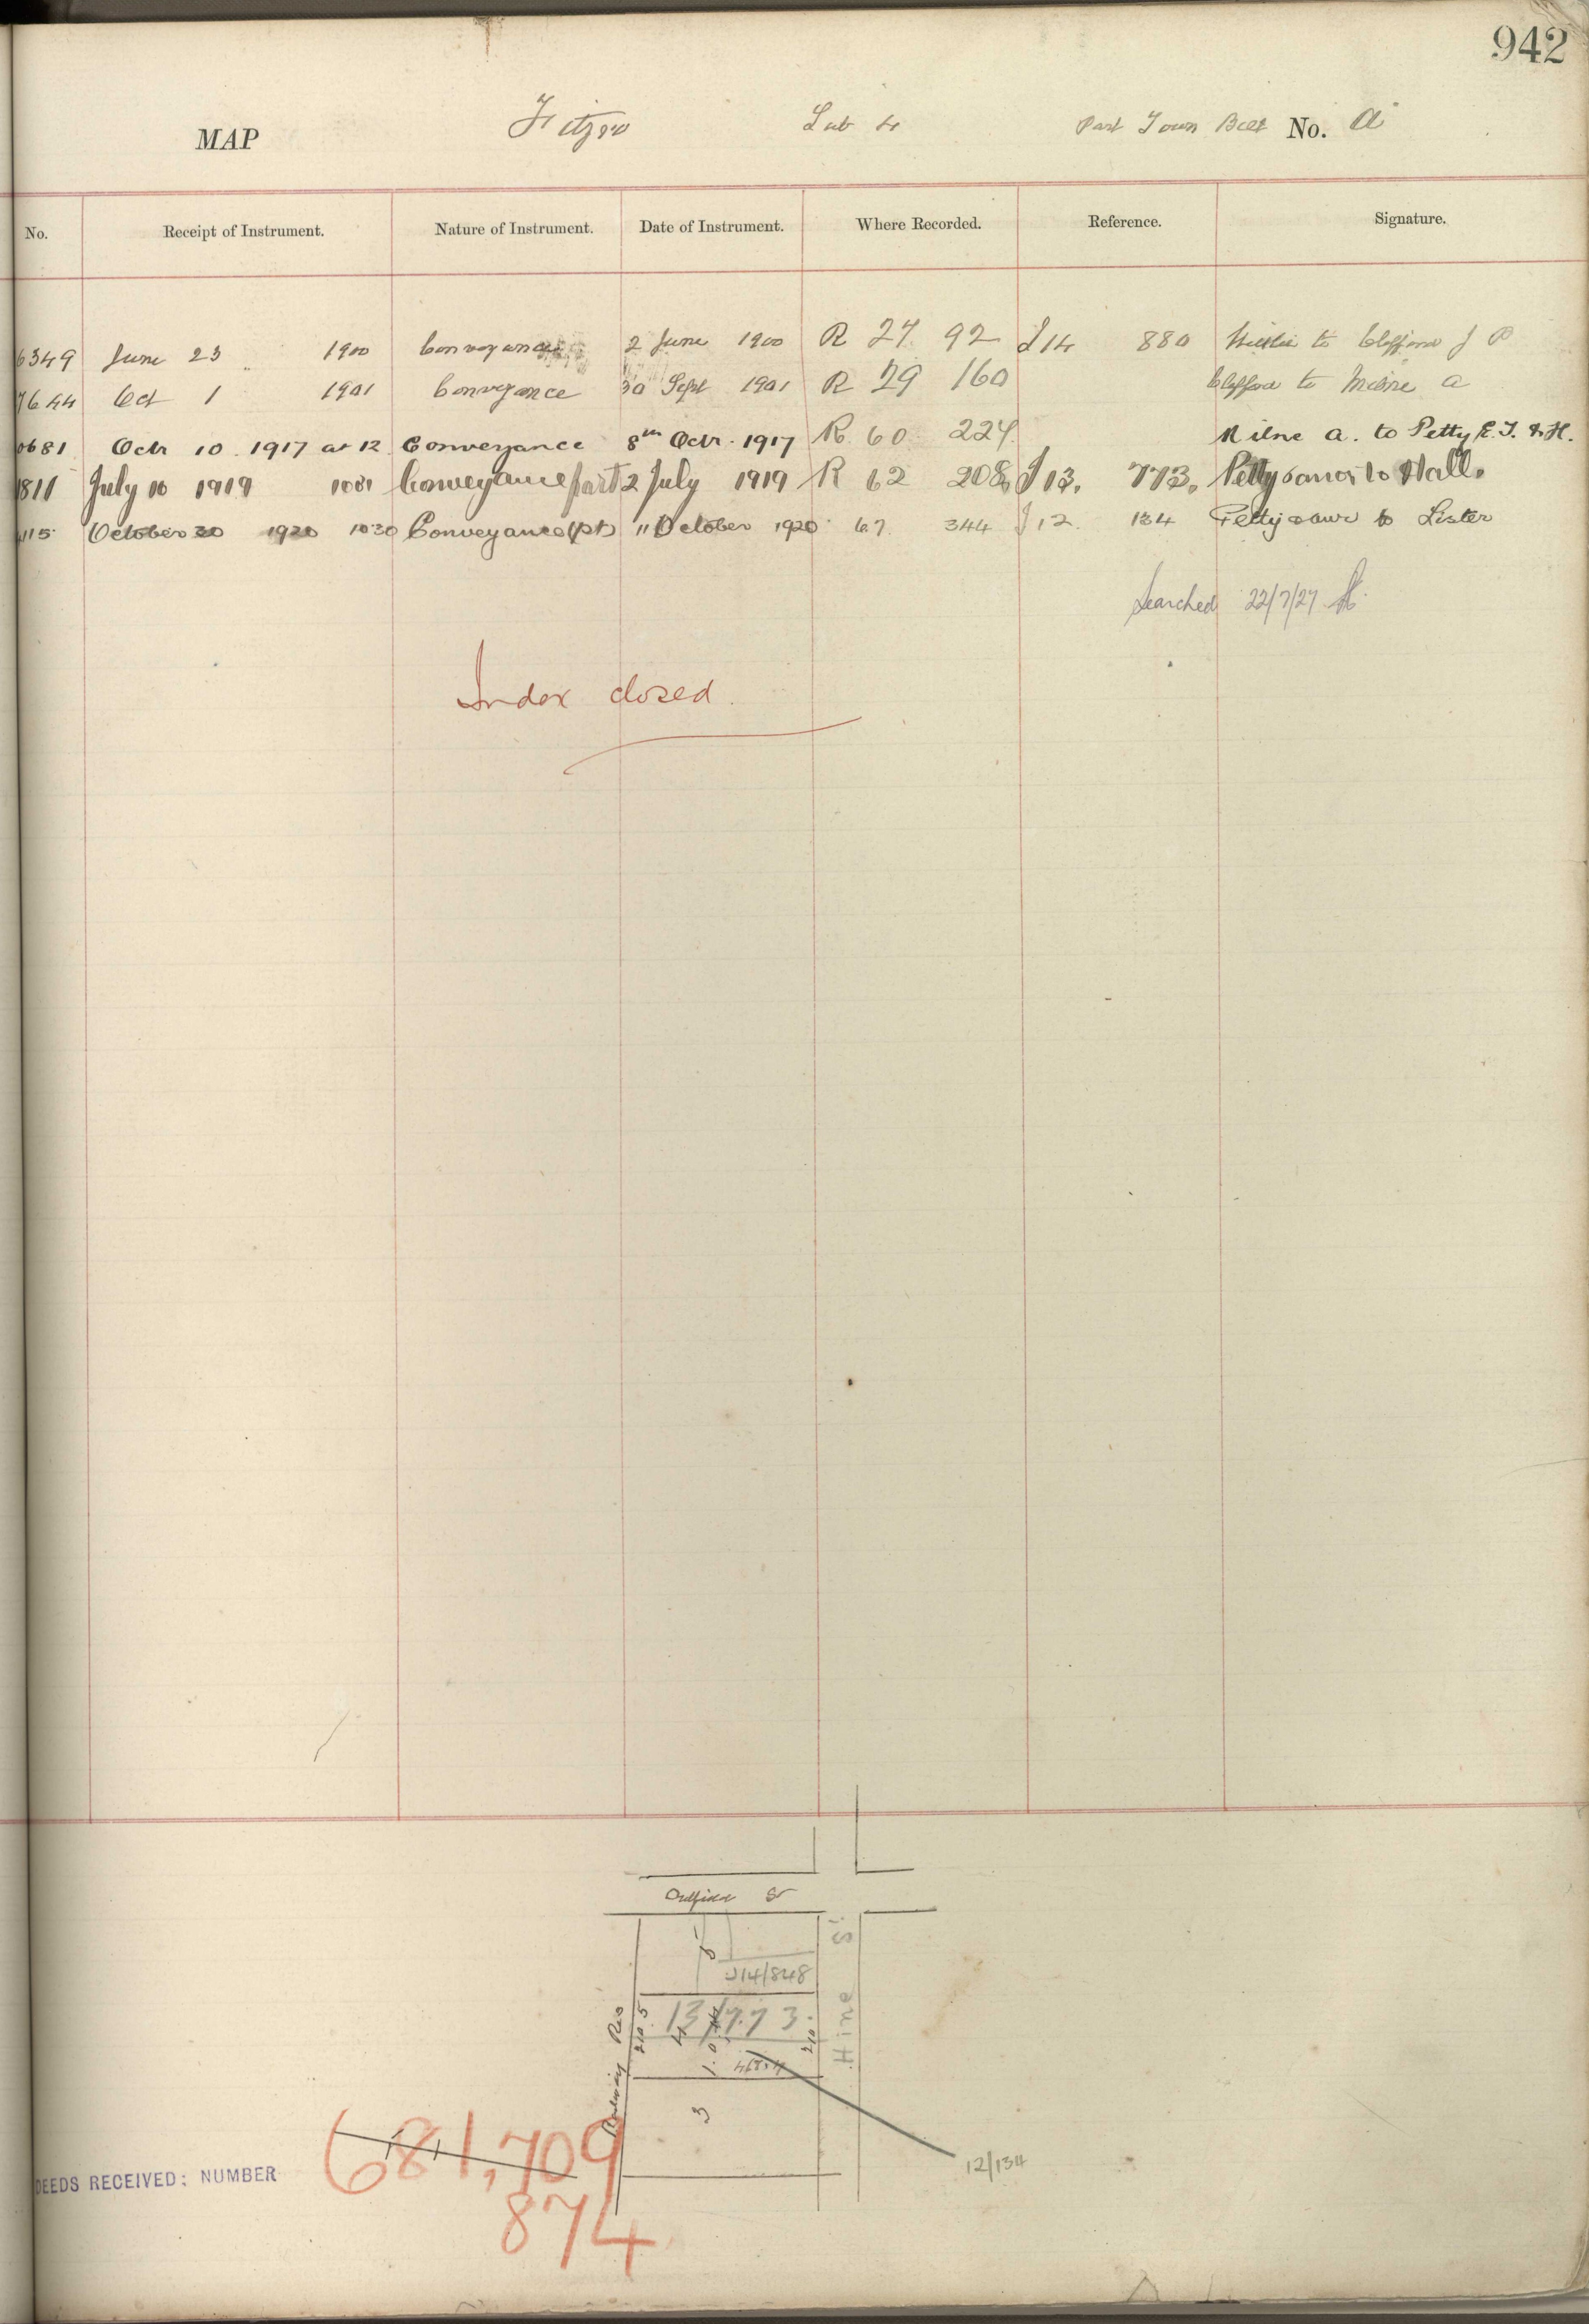 942
MAP Fitzro Lot 4 Part Town Belt No. A
No. Receipt of Instrument. Nature of Instrument. Date of Instrument. Where Recorded. Reference. Signature.
6349 June 23 1900 Conveyance 2 June 1900 R 27. 92 J14 880 to Clifford J P
7644 Oct 1 1901 Conveyance 30 Sept 1901 R 29 160 Clifford to Milne A
0681 Octr 10. 1917 at 12 Conveyance 8th Octr. 1917 R. 60. 224. Milne A. to Petty E.J. & H.
1811 July 10 1919 Conveyance part 2 July 1919 R 62 208 J13. 773. Petty & anor to Hall.
115 October 20 1920 10 30 Conveyance (pt) 11 October 1920 67. 344 J12. 134 Petty & anor to Lister
Searched 22/7/27
Index closed.
St
J14/848
Hine St.
13/773
210.5
4
210.
468.4
Railway Res
3
12/134
DEEDS RECEIVED: NUMBER 681,709
874